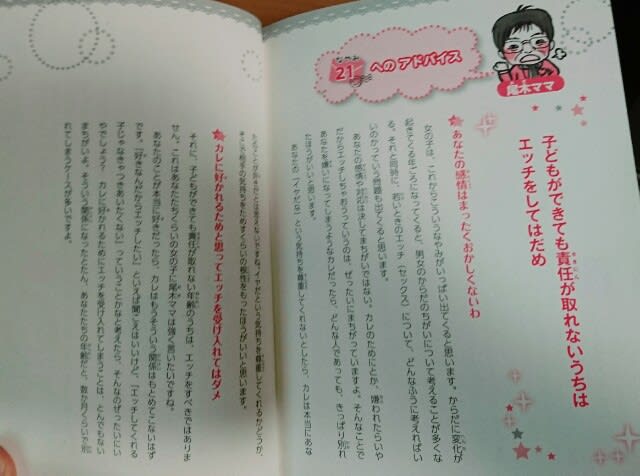 なやみ
21 へのアドバイス
尾木ママ
子どもができても責任が取れないうちは
せきにん
エッチをしてはだめ
あなたの感情はまったくおかしくないわ
女の子は、これからこういうなやみがいっぱい出てくると思います。からだに変化が
起きてくる年ごろになってくると、男女のからだのちがいについて考えることが多くな
る。それと同時に、若いときのエッチ（セックス）について、どんなふうに考えればい
いのかっていう問題も出てくると思います。
あなたの感情や対応は決してまちがいではない。カレのためにとか、嫌われたらいや
だからエッチしちゃおうっていうのは、ぜったいにまちがっていますよ。そんなことで
あなたを嫌いになってしまうようなカレだったら、どんな人であっても、きっぱり別れ
たほうがいいと思います。
あなたの「イヤだな」という気持ちを尊重してくれないとしたら、カレは本当にあな
たのことが好きだとは言えないですね。イヤだという気持ちを尊重してくれるかどうか、
相手の気持ちをためすくらいの根性をもったほうがいいと思います。
カレに好かれるためと思ってエッチを受け入れてはダメ
それに、子どもができても責任が取れない年齢のうちは、エッチをすべきではありま
せん。これはあなたたちくらいの女の子に尾木ママは強く言いたいですね。
あなたのことが本当に好きだったら、カレはもうそういう関係はもとめてこないはず
です。「好きなんだからエッチしたい」といえば聞こえはいいけど、「エッチしてくれる
子じゃなきゃつきあいたくない」っていうことかなと考えたら、そんなのぜったいにい
やでしょう？　カレに好かれるためにエッチを受け入れてしまうことは、とんでもない
まちがいよ。そういう関係になったとたん、あなたたちの年齢だと、数か月くらいで別
れてしまうケースが多いですよ。